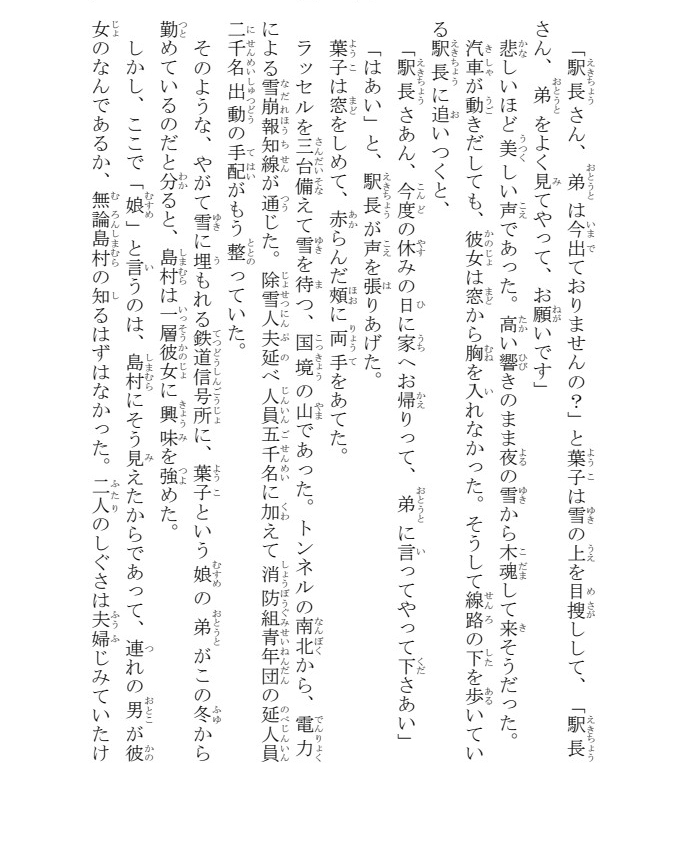 「駅長さん、弟は今出ておりませんの？」と葉子は雪の上を目捜しして、「駅長
さん、弟をよく見てやって、お願いです」
悲しいほど美しい声であった。高い響きのまま夜の雪から木魂して来そうだった。
汽車が動きだしても、彼女は窓から胸を入れなかった。そうして線路の下を歩いてい
る駅長に追いつくと、
「駅長さあん、今度の休みの日に家へお帰りって、弟に言ってやって下さあい」
「はあい」と、駅長が声を張りあげた。
葉子は窓をしめて、赤らんだ頰に両手をあてた。
ラッセルを三台備えて雪を待つ、国境の山であった。トンネルの南北から、電力
による雪崩報知線が通じた。除雪人夫延べ人員五千名に加えて消防組青年団の延人員
二千名出動の手配がもう整っていた。
そのような、やがて雪に埋もれる鉄道信号所に、葉子という娘の弟がこの冬から
勤めているのだと分ると、島村は一層彼女に興味を強めた。
しかし、ここで「娘」と言うのは、島村にそう見えたからであって、連れの男が彼
女のなんであるか、無論島村の知るはずはなかった。二人のしぐさは夫婦じみていたけ